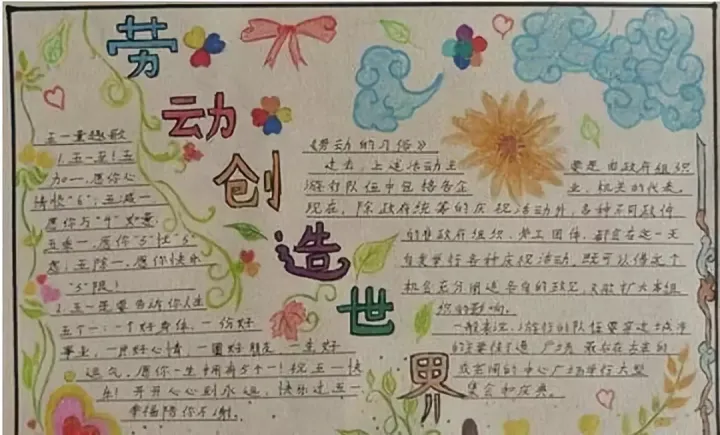 劳动创造世界
五一童趣歌
1.五一至!五
加一,愿你心
情快"6";五减一
愿你与"4"如意
五乘一,愿你"5"忙"5"
虑;五除一,愿你快乐
"5"限!
2.五一是要告诉你人生
五个一:一个好身体,一份好
事业,一片好心情,一圈好朋友,一生好
运气。愿你一生拥有5个一!祝五一快
乐!开开心心到永远,快乐过五一
幸福陪你不溜。
《劳动的习俗》
过去,上述活动主要是由政府组织
游行队伍中包括各企业、机关的代表。
现在,除政府统筹的庆祝活动外,各种不同政件
的非政府组织、劳工团体,都会在这一天
自发举行各种庆祝活动,既可以借这个
机会充分阐述各自的政见,又能扩大本组
织的影响。
一般来说,游行的队伍要穿过城市
的主要街道、广场,最后在
或空阔的中心广场举行大型
集会和庆典。